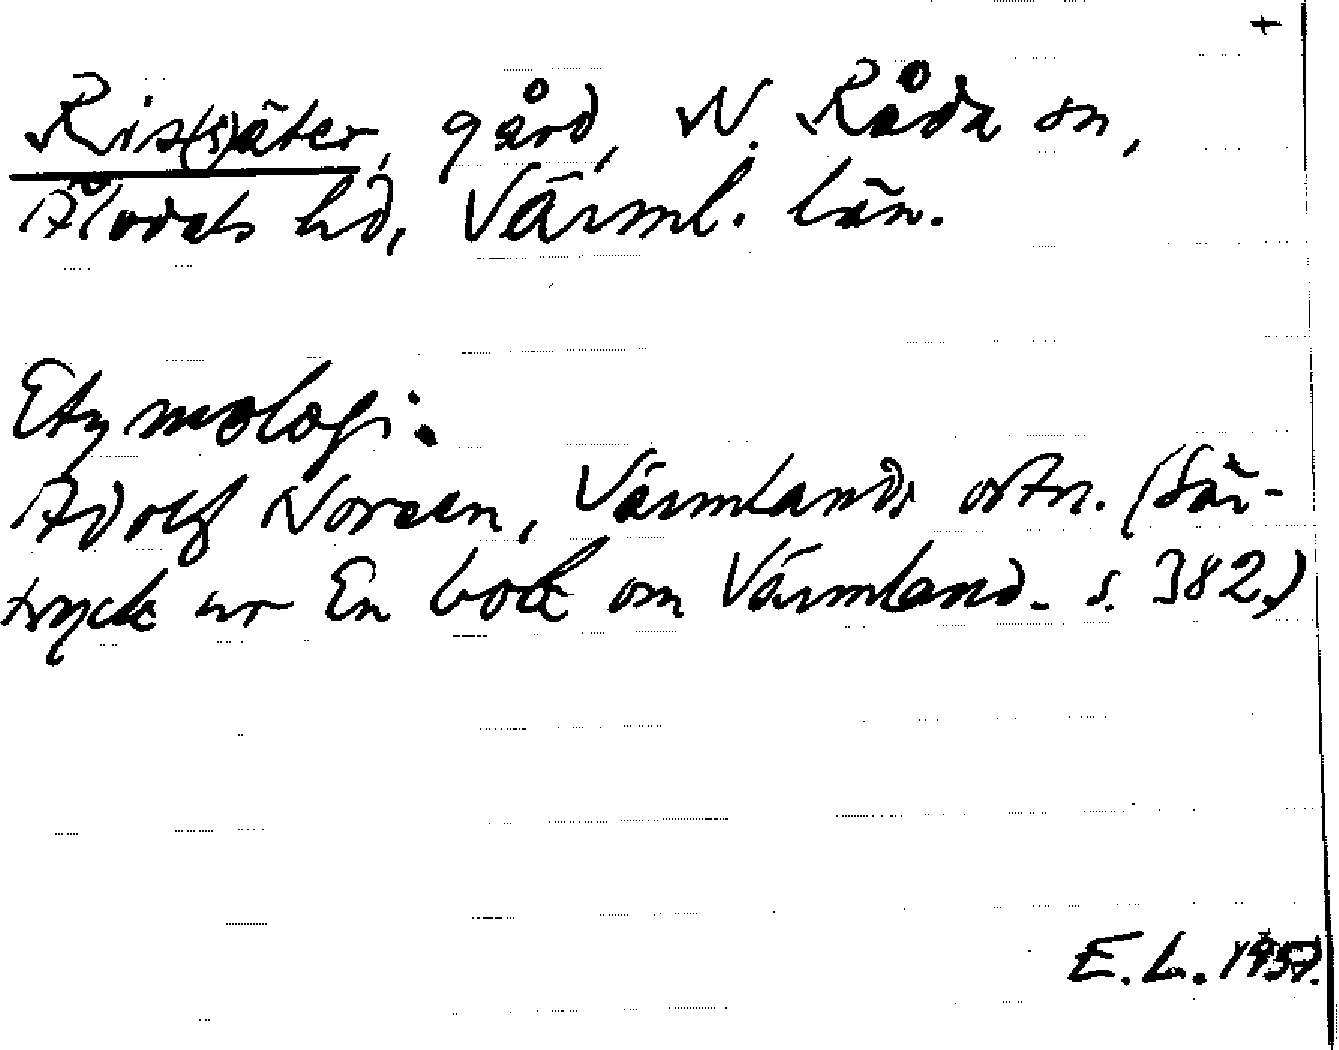 +
Rist(s)äter, gård, N. Råda sn,
Älvdals hd, Värml. län.
Etymologi:
Adolf Noreen, Värmlands ortn. (Sär-
tryck ur En bok om Värmland. s. 382.)
E. L. 1957.